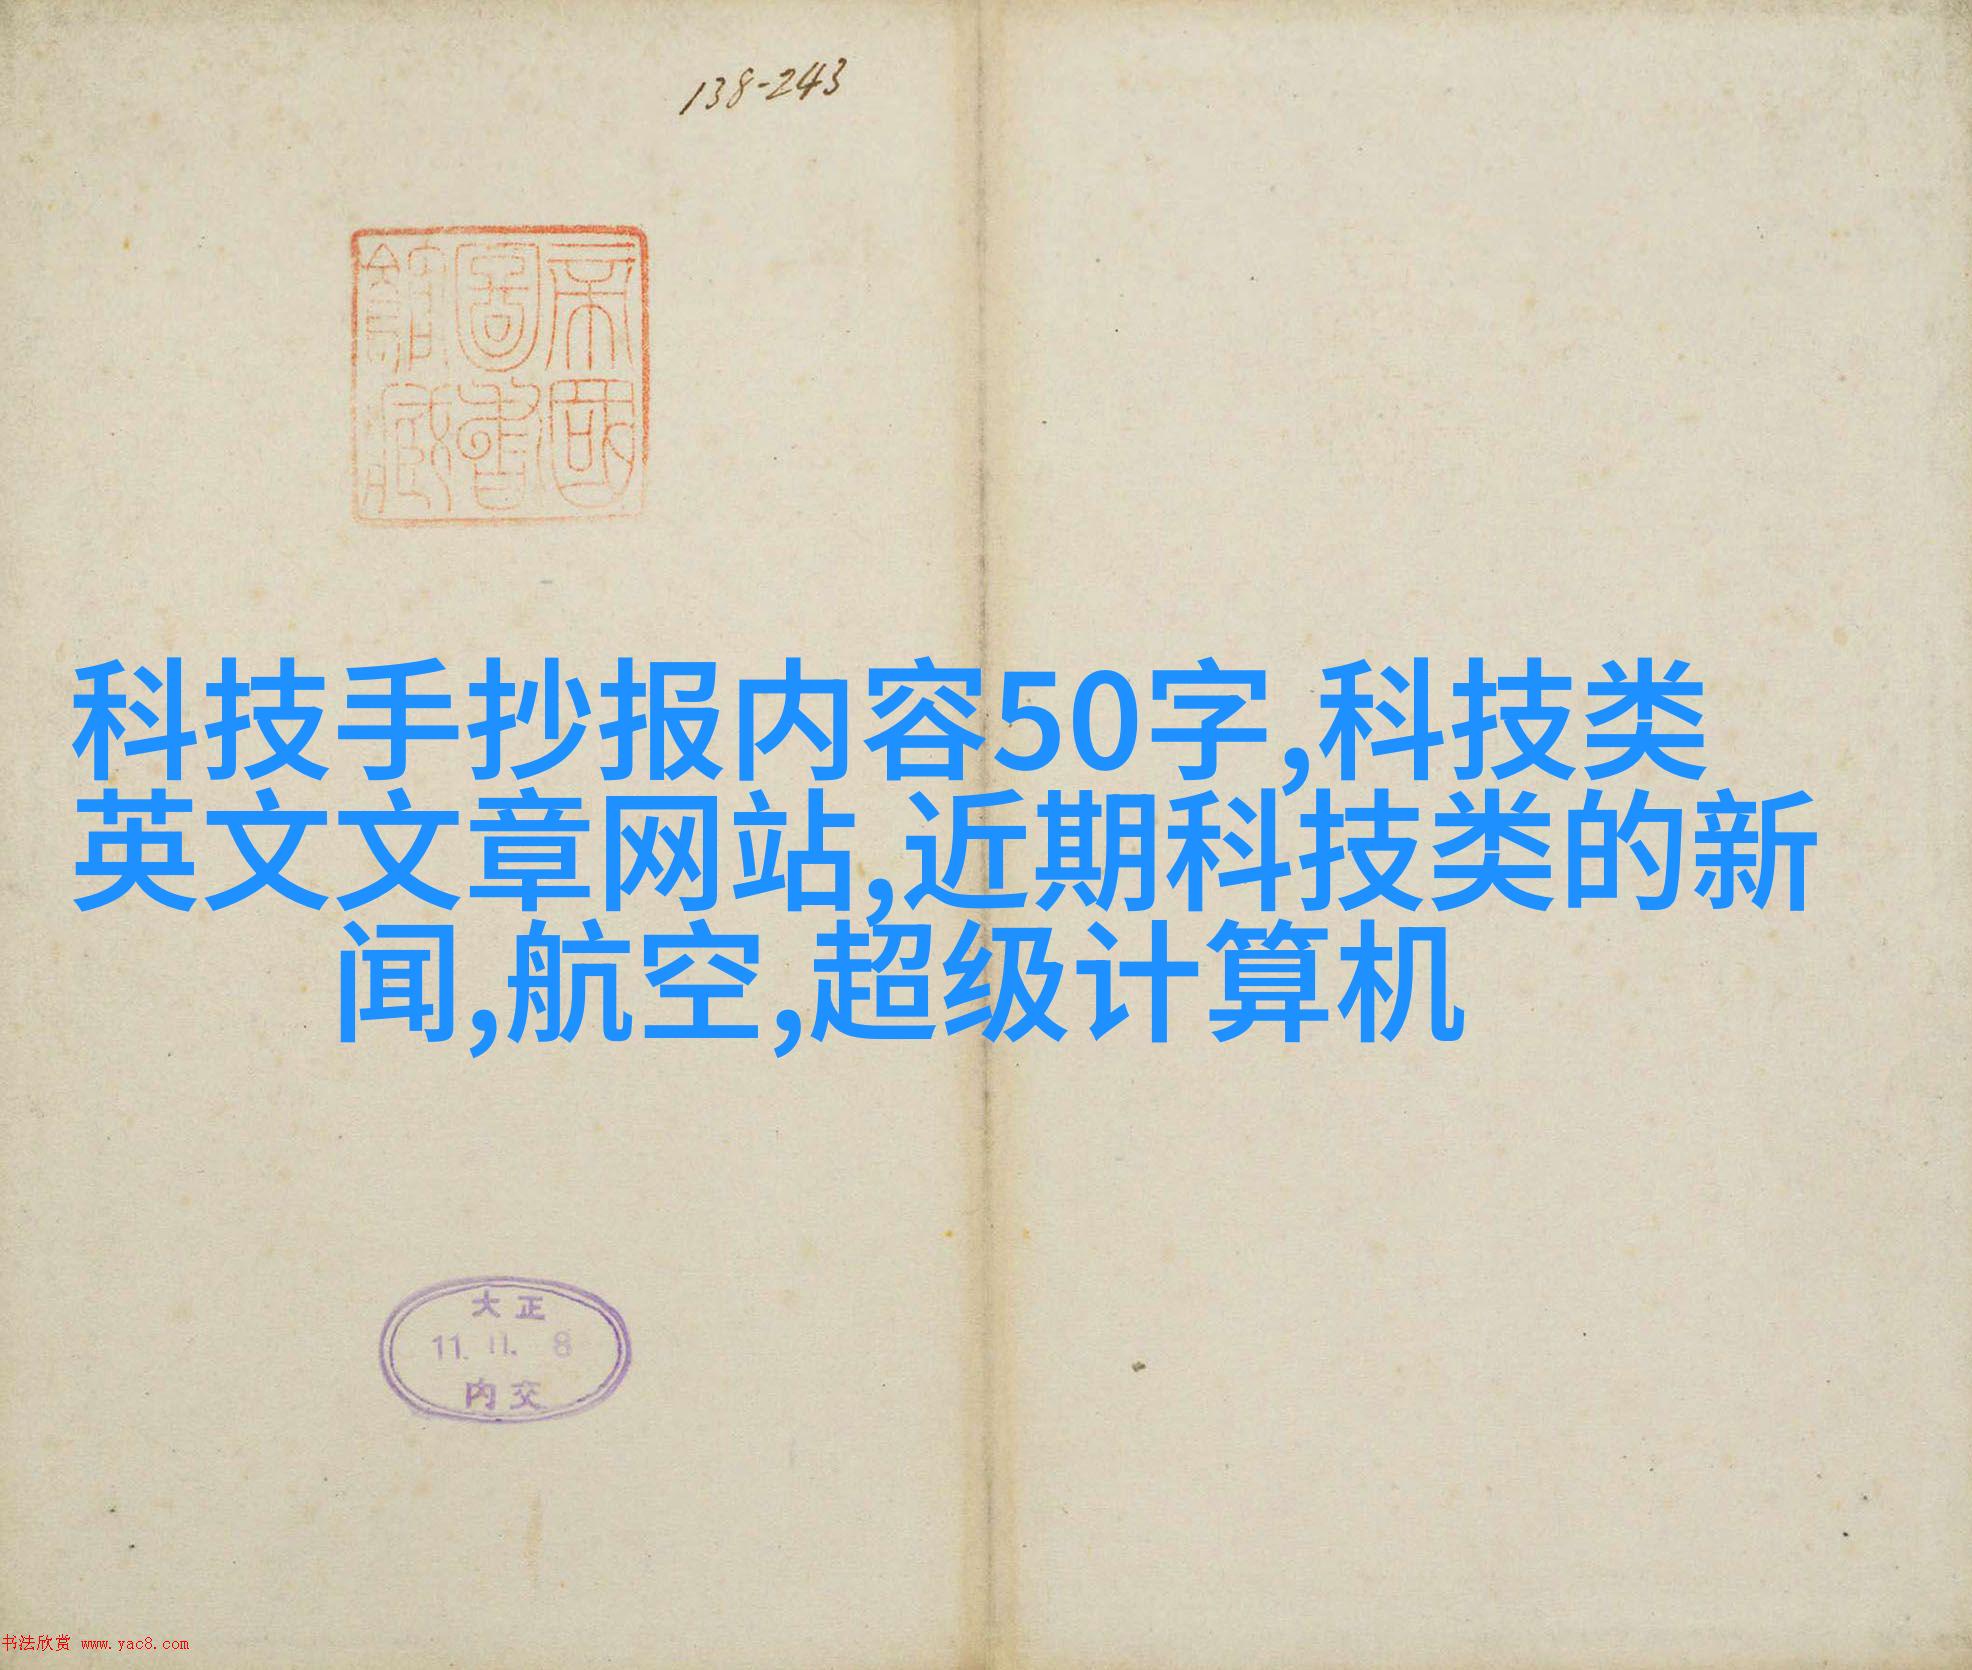 138-243
帝國
圖書
館藏
科技手抄报内容50字,科技类
英文文章网站,近期科技类的新
闻,航空,超级计算机
大正
11. 11. 8
内交
书法欣赏 www.yac8.com